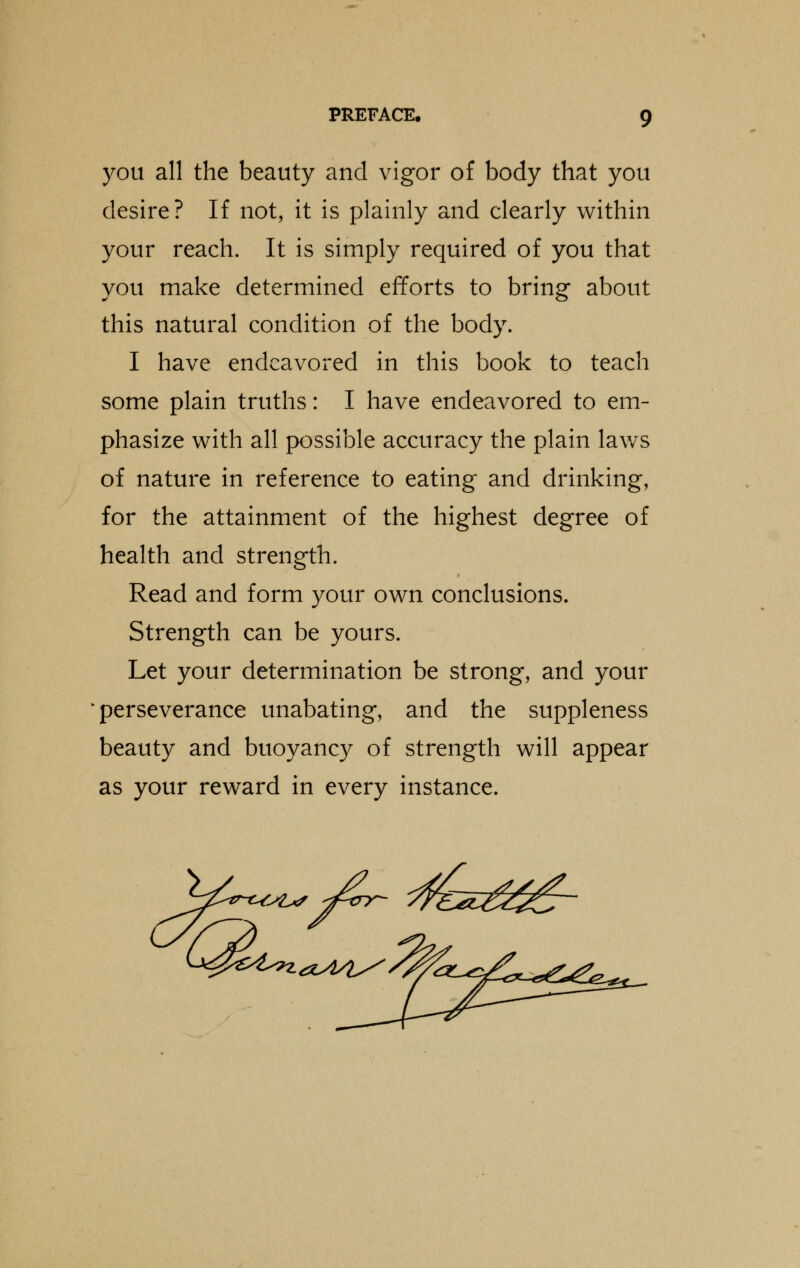 PREFACE. 9
you all the beauty and vigor of body that you
desire? If not, it is plainly and clearly within
your reach. It is simply required of you that
you make determined efforts to bring about
this natural condition of the body.
I have endeavored in this book to teach
some plain truths: I have endeavored to em-
phasize with all possible accuracy the plain laws
of nature in reference to eating and drinking,
for the attainment of the highest degree of
health and strength.
Read and form your own conclusions.
Strength can be yours.
Let your determination be strong, and your
perseverance unabating, and the suppleness
beauty and buoyancy of strength will appear
as your reward in every instance.
Yours for Health
Bernarr Macfadden